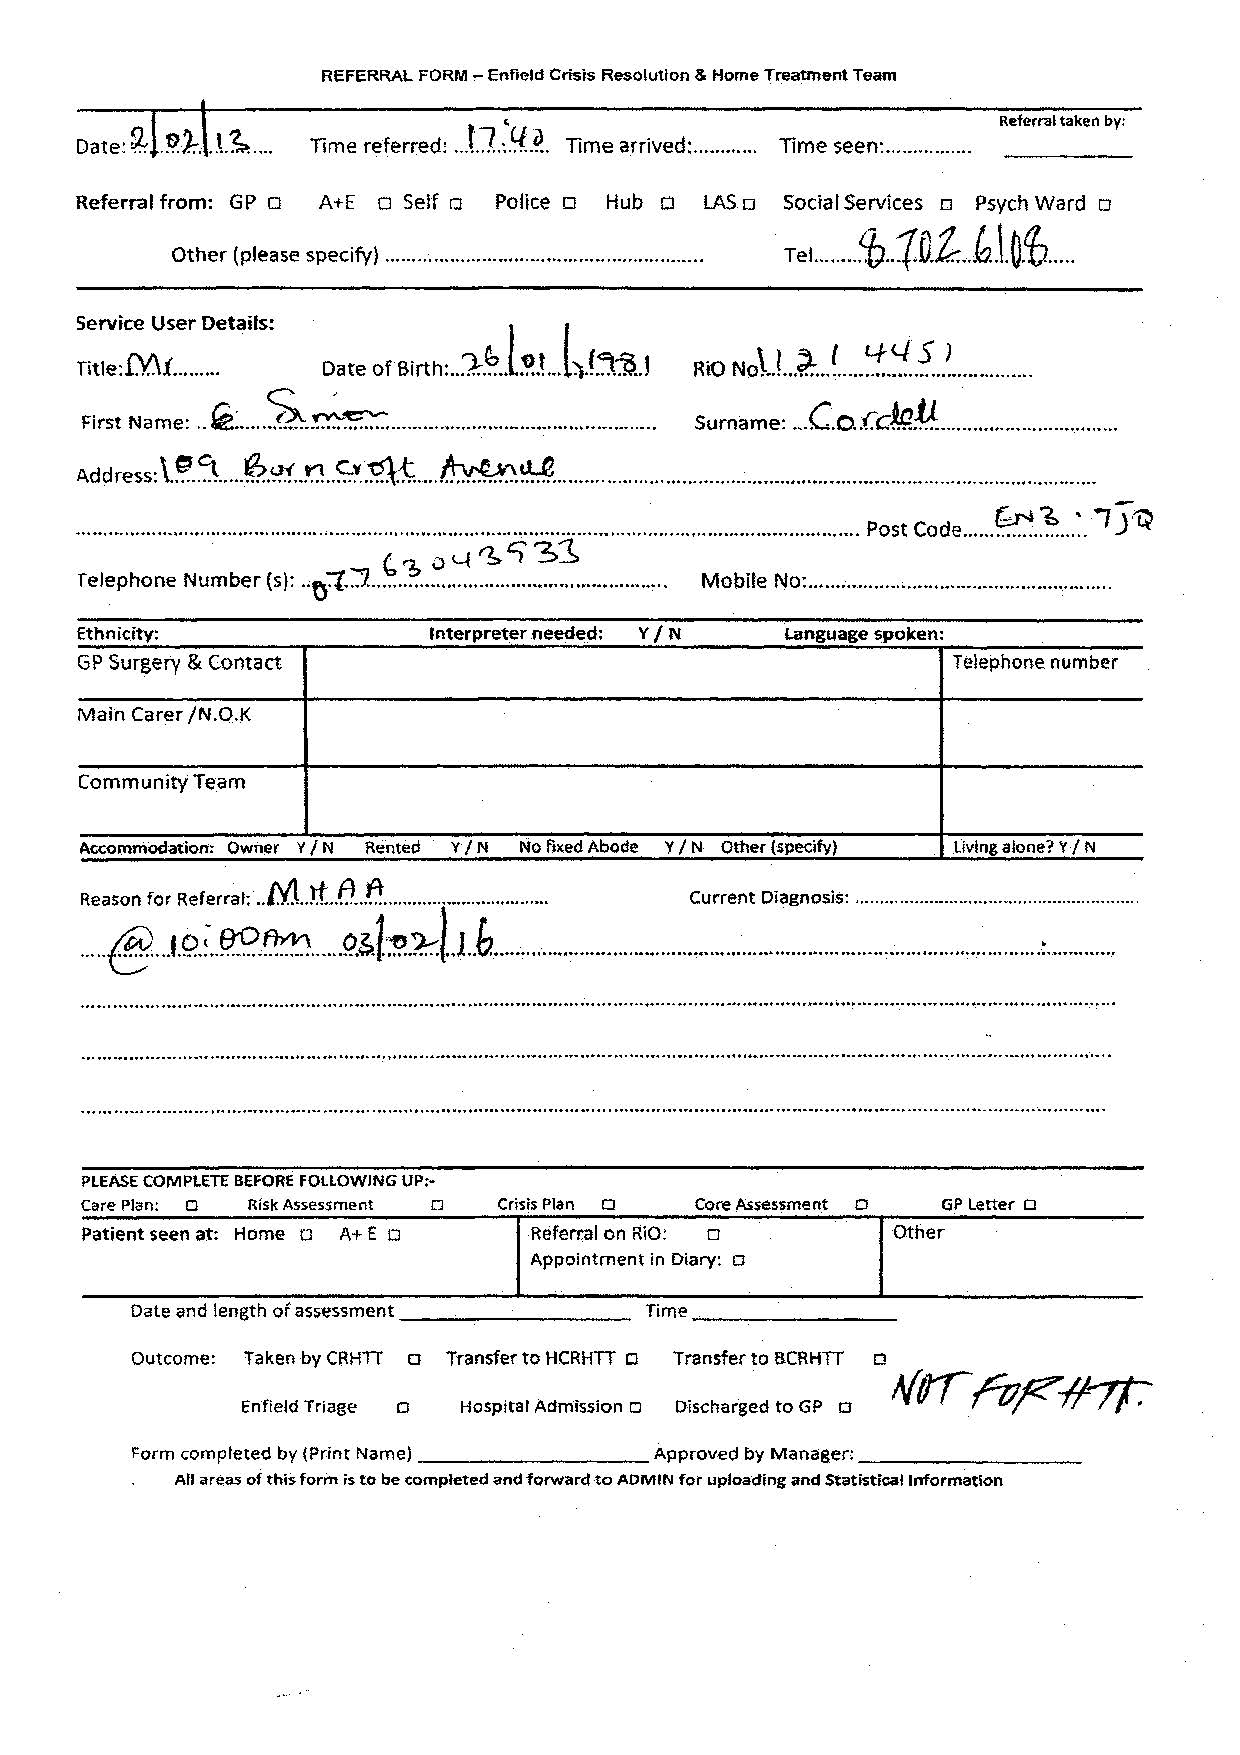 REFERRAL FORM – Enfield Crisis Resolution & Home Treatment Team
Referral taken by:
Date: 2/02/13 Time referred: 17:42 Time arrived: Time seen:
Referral from: GP □ A+E □ Self □ Police □ Hub □ LAS □ Social Services □ Psych Ward □
Other (please specify) Tel 8702 6108
Service User Details:
Title: Mr Date of Birth: 26/01/1981 RiO No 11214451
First Name: Simon Surname: Cordell
Address: 109 Burncroft Avenue
Post Code EN3 7JQ
Telephone Number (s): 07763043533 Mobile No:
Ethnicity: Interpreter needed: Y / N Language spoken:
GP Surgery & Contact Telephone number
Main Carer /N.O.K
Community Team
Accommodation: Owner Y / N Rented Y / N No fixed Abode Y / N Other (specify) Living alone? Y / N
Reason for Referral: MHAA Current Diagnosis:
@ 10:00AM 03/02/16
PLEASE COMPLETE BEFORE FOLLOWING UP:-
Care Plan: □ Risk Assessment □ Crisis Plan □ Core Assessment □ GP Letter □
Patient seen at: Home □ A+ E □ Referral on RiO: □ Other
Appointment in Diary: □
Date and length of assessment Time
Outcome: Taken by CRHTT □ Transfer to HCRHTT □ Transfer to BCRHTT □
NOT FOR HTT.
Enfield Triage □ Hospital Admission □ Discharged to GP □
Form completed by (Print Name) Approved by Manager:
All areas of this form is to be completed and forward to ADMIN for uploading and Statistical Information